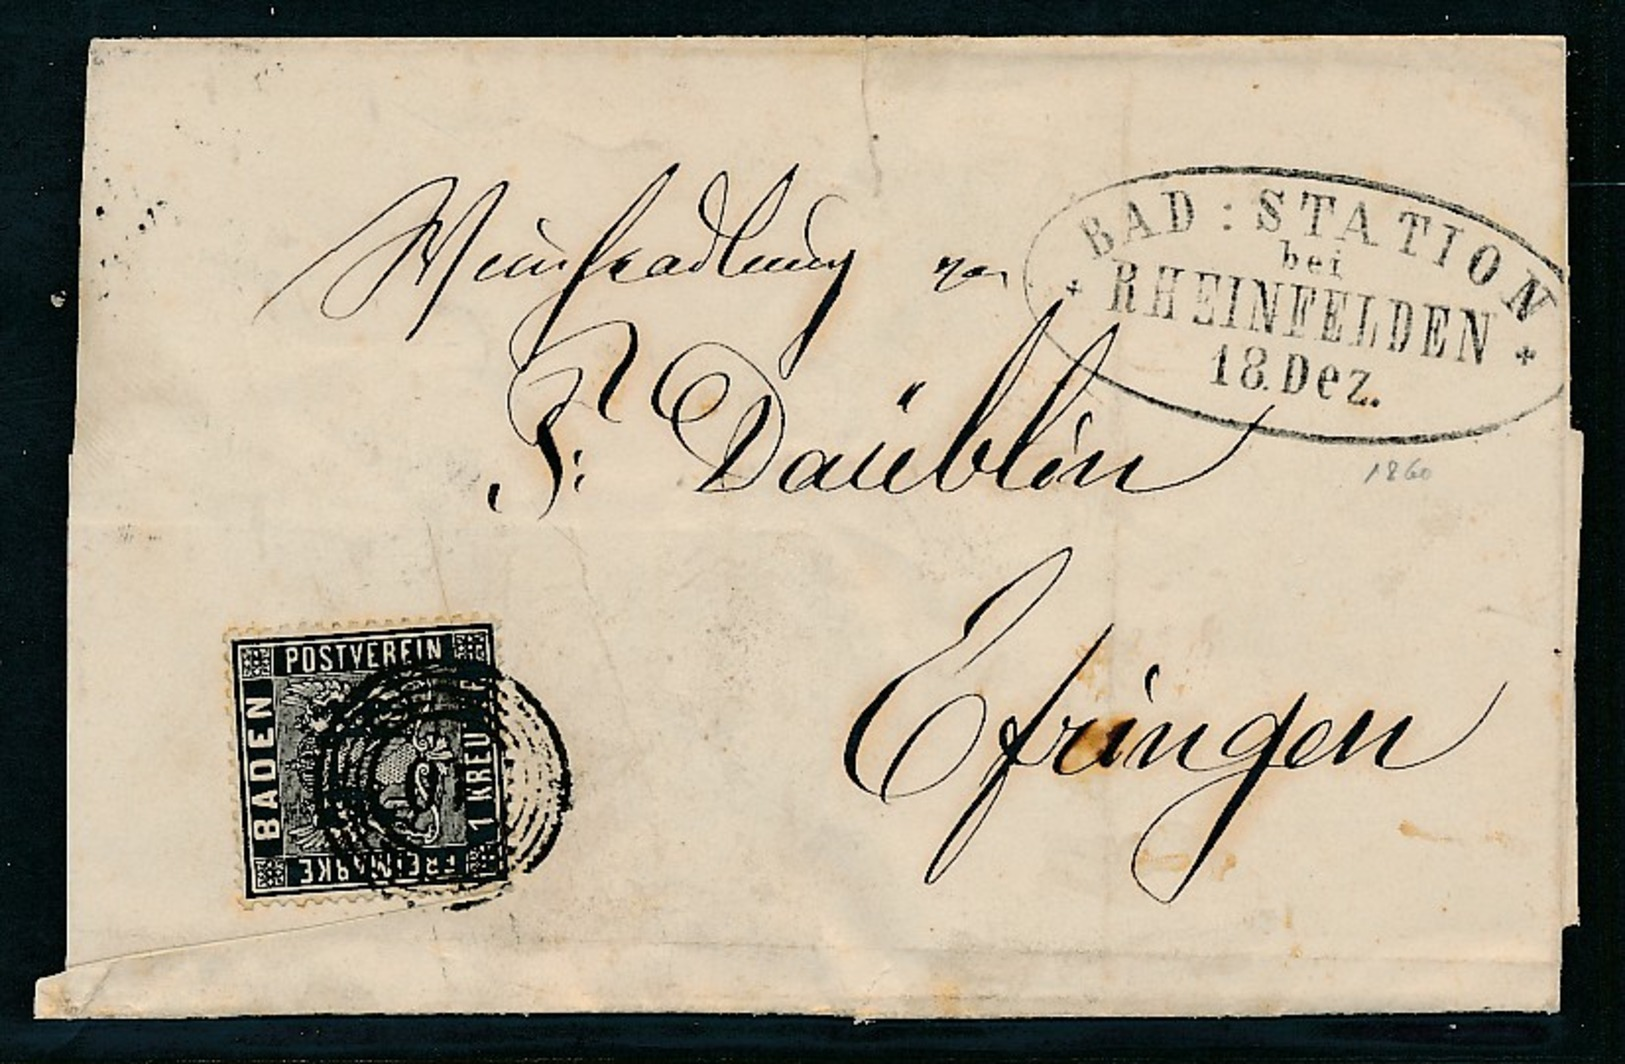 BAD: STATION
bei
RHEINFELDEN
18. Dez.
Weinhandlung von
F: Daüblin
1860
Efringen
POSTVEREIN
BADEN
1 KREUZER
FREIMARKE